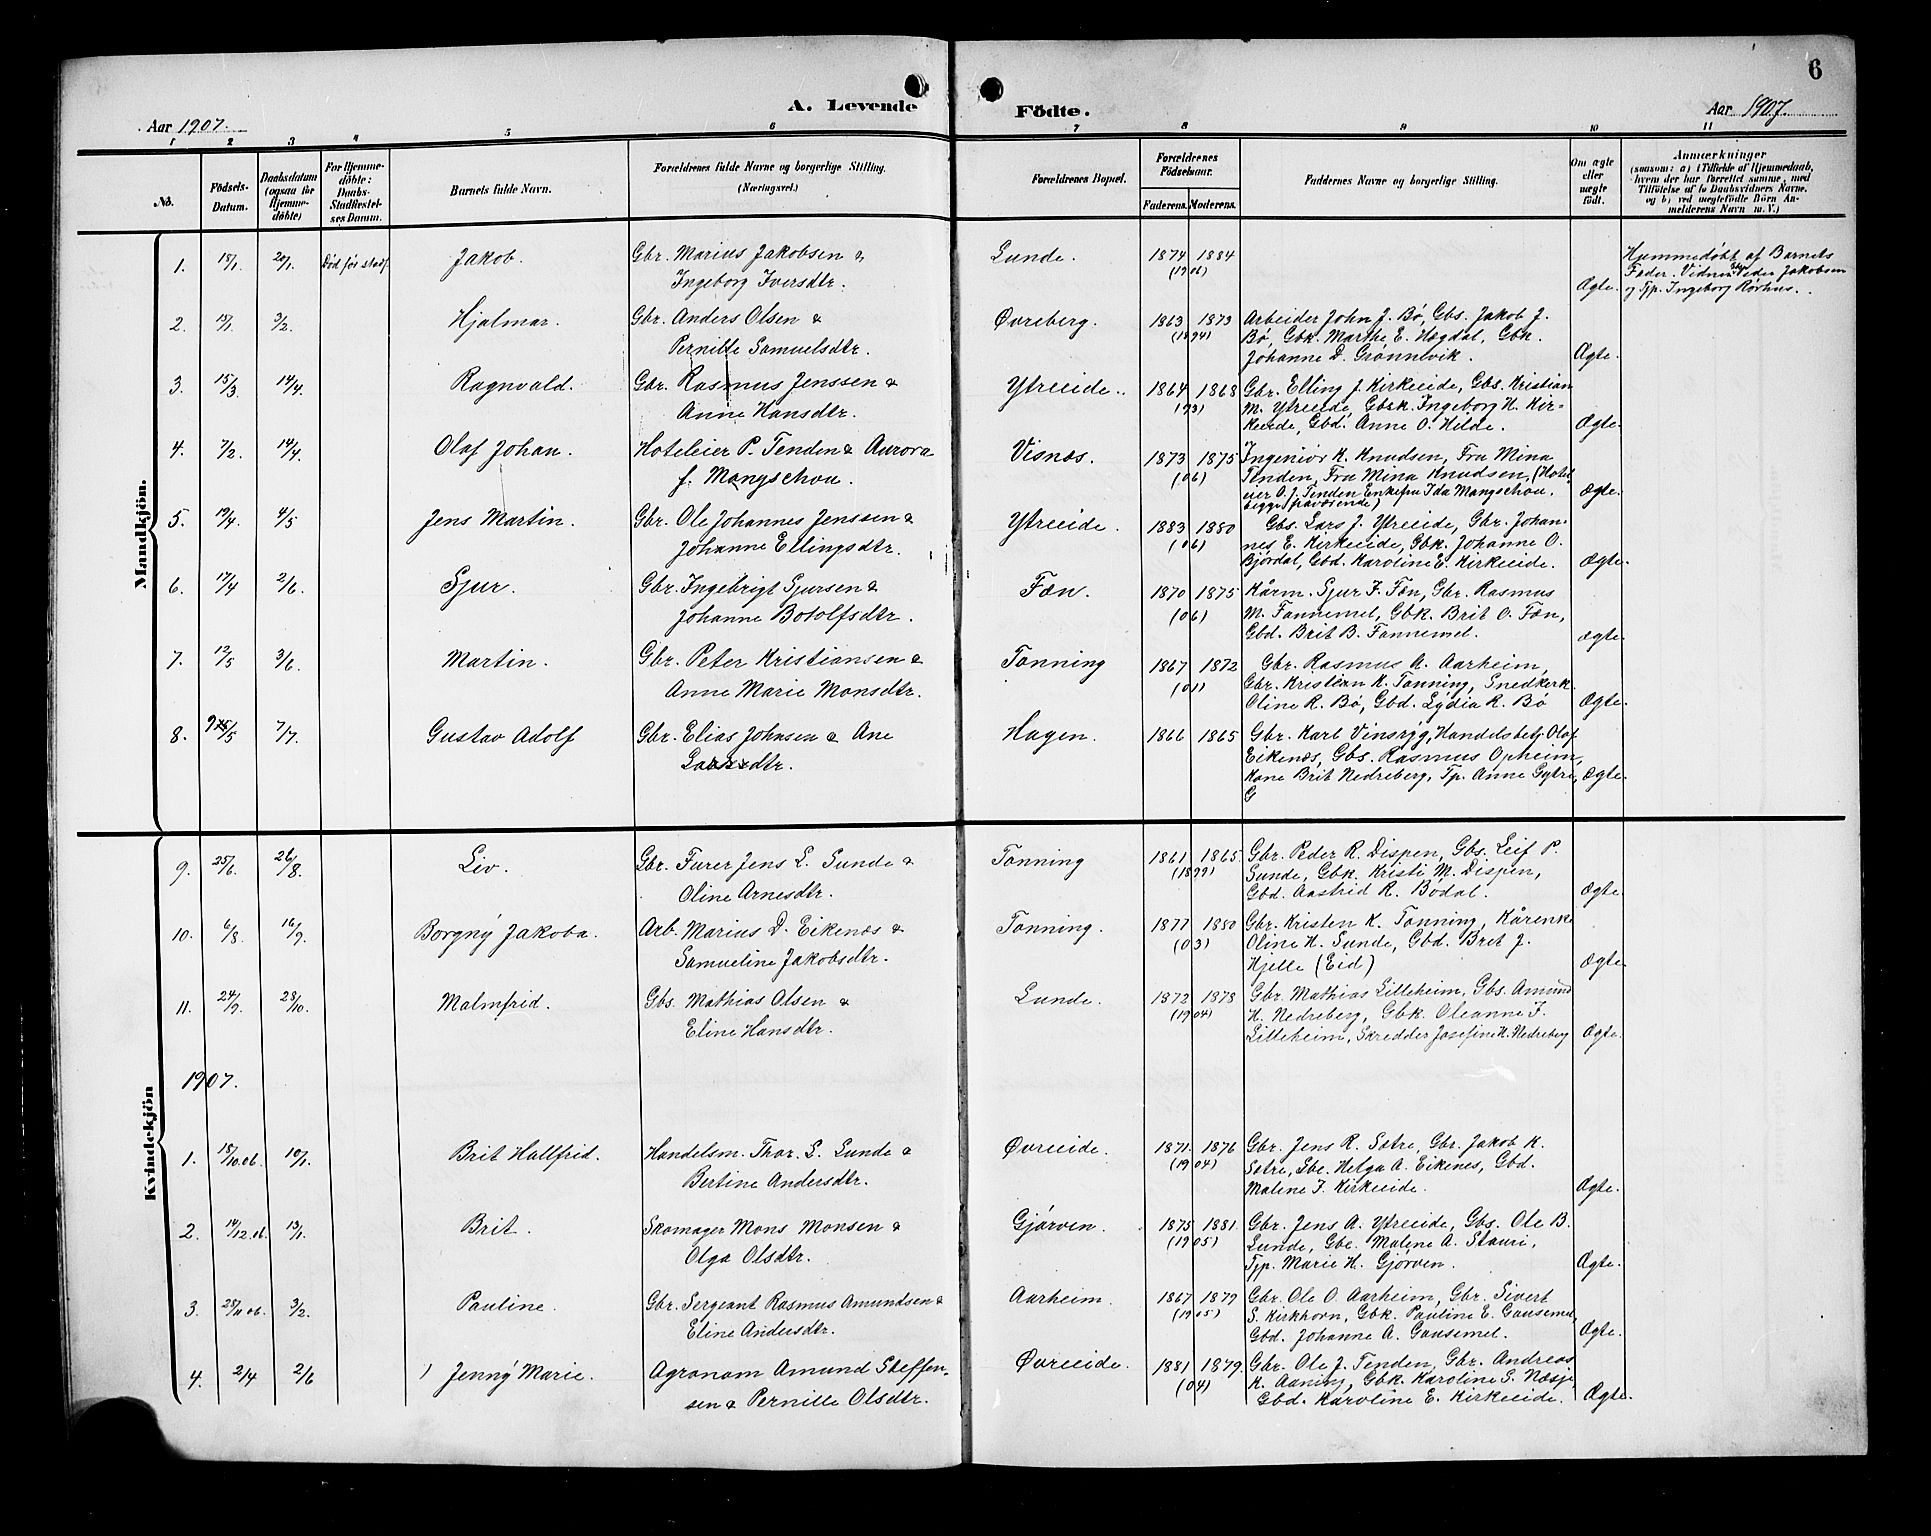 6
A. Levende Födte.
Aar 1907.
Aar 1907.
1 2 3 4 5 6 7 8 9 10 11
No.
Födsels-Datum.
Daabsdatum (ogsaa for Hjemme-döbte)
For Hjemme-döbte: Daabs-Stadfæstel-ses Datum.
Barnets fulde Navn.
Forældrenes fulde Navne og borgerlige Stilling. (Næringsvei.)
Forældrenes Bopæl.
Forældrenes Födselsaar.
Faderens. Moderens.
Faddernes Navne og borgerlige Stilling.
Om ægte eller uægte födt.
Anmærkninger
(saasom: a) i Tilfælde af Hjemmedaab, hvem der har forrettet samme, med Tilföielse af to Daabsvidners Navne, og b) ved uægtefödte Börn An-melderens Navn m. V.)
Mandkjön.
1. 18/1 20/1 Död før stadf. Jakob. Gbr. Marius Jakobsen & Lunde. 1874 1884 Hjemmedøbt af Barnets
Ingeborg Iversdtr. (1906) Ægte. Fader. Vidner: Peder Jakobsen
og Tjp. Ingeborg Rørhus.
2. 13/1 3/2 Hjalmar. Gbr. Anders Olsen & Øvreberg. 1863 1873 Arbeider John J. Bø, Gbs. Jakob J.
Pernille Samuelsdtr. (1894) Bø, Gbk. Marthe E. Hægdal, Gbk.
Johanne D. Grønnevik. Ægte.
3. 15/3 14/4 Ragnvald. Gbr. Rasmus Jenssen & Ytreeide. 1864 1868 Gbr. Elling J. Kirkeeide, Gbs. Kristian
Anne Hansdtr. (93) M. Ytreeide, Gbsk. Ingeborg H. Kir-
keeide, Gbd. Anne O. Hilde. Ægte.
4. 7/2 14/4 Olaf Johan. Hoteleier P. Tenden & Aurora Visnæs. 1873 1875 Ingeniör K. Knudsen, Fru Mina
f. Mangschou. (06) Tenden, Fru Mina Knudsen, (Hotel-
eier O. J. Tenden Enkefru Ida Mangschou. Ægte.
begge fraværende)
5. 19/4 4/5 Jens Martin. Gbr. Ole Johannes Jenssen & Ytreeide. 1883 1880 Gbs. Lars J. Ytreeide, Gbr. Johan-
Johanne Ellingsdtr. (06) nes E. Kirkeeide, Gbk. Johanne O.
Bjørdal, Gbd. Karoline E. Kirkeeide. Ægte.
6. 17/4 2/6 Sjur. Gbr. Ingebrigt Sjursen & Fæn. 1870 1875 Kårm. Sjur I. Fæn, Gbr. Rasmus
Johanne Botolfsdtr. (06) M. Fannemel, Gbk. Brit O. Fæn,
Gbd. Brit B. Fannemel. Ægte.
7. 12/5 3/6 Martin. Gbr. Peter Kristiansen & Tonning 1867 1872 Gbr. Rasmus A. Aarheim,
Anne Marie Monsdtr. (01) Gbr. Kristian K. Tonning, Snedkerk.
Oline R. Bø, Gbd. Lydia R. Bø Ægte.
8. /5 7/7 Gustav Adolf Gbr. Elias Johnsen & Ane Hagen. 1866 1865 Gbr. Karl Vinsryg, Handelsbetj. Olaf
Larsdtr. Eikenæs, Gbs. Rasmus Opheim,
Kone Brit Nedreberg, Tp. Anne Gytre, Ægte.
G
Kvindekjön
9. 25/6 26/8. Liv. Gbr. Furer Jens L. Sunde & Tonning 1861 1865. Gbr. Peder R. Dispen, Gbs. Leif P.
Oline Arnesdtr. (1899) Sunde, Gbk. Kristi M. Dispen,
Gbd. Aastrid R. Bødal. Ægte.
10. 6/8. 16/9. Borgny Jakoba. Arb. Marius D. Eikenæs & Tonning. 1877 1880 Gbr. Kristen K. Tonning, Kårenke
Samueline Jakobsdtr. (03) Oline H. Sunde, Gbd. Brit J.
Hjelle (Eid) Ægte.
11. 24/9. 28/10. Malmfrid. Gbs. Mathias Olsen & Lunde. 1872 1878 Gbr. Mathias Lilleheim, Gbs. Amund
Eline Hansdtr. (1904) H. Nedreberg, Gbk. Oleanne I.
Lilleheim, Skredder Josefine H. Nedreberg Ægte.
1907.
1. 18/10.06. 10/1. Brit Hallfrid. Handelsm. Thor. L. Lunde & Øvreeide. 1871. 1876 Gbr. Jens R. Sætre, Gbr. Jakob K.
Bertine Andersdtr. (1904) Sætre, Gbe. Helga A. Eikenes, Gbd.
Maline I. Kirkeeide. Ægte.
2. 14/12.06. 13/1. Brit. Skomager Mons Monsen & Gjørven. 1875 1881. Gbr. Jens A. Ytreeide, Gbs. Ole B.
Olga Olsdtr. (1905) Lunde, Gbe. Malene A. Stauri,
Tjp. Marie H. Gjørven. Ægte.
3. 28/11 06. 3/2. Pauline. Gbr. Sergeant Rasmus Amundsen & Aarheim. 1867 1879 Gbr. Ole O. Aarheim, Gbr. Sivert
Eline Andersdtr. (1905) S. Kirkhorn, Gbk. Pauline E. Gausemel,
Gbd. Johanne A. Gausemel. Ægte.
4. 2/4 2/6 Jenny Marie. Agronom Amund Steffen- Øvreeide. 1881 1879. Gbr. Ole J. Tenden, Gbr. Andreas
sen & Pernille Olsdtr. (04) K. Aaning, Gbk. Karoline S. Næsje
Gbd. Karoline E. Kirkeeide. Ægte.